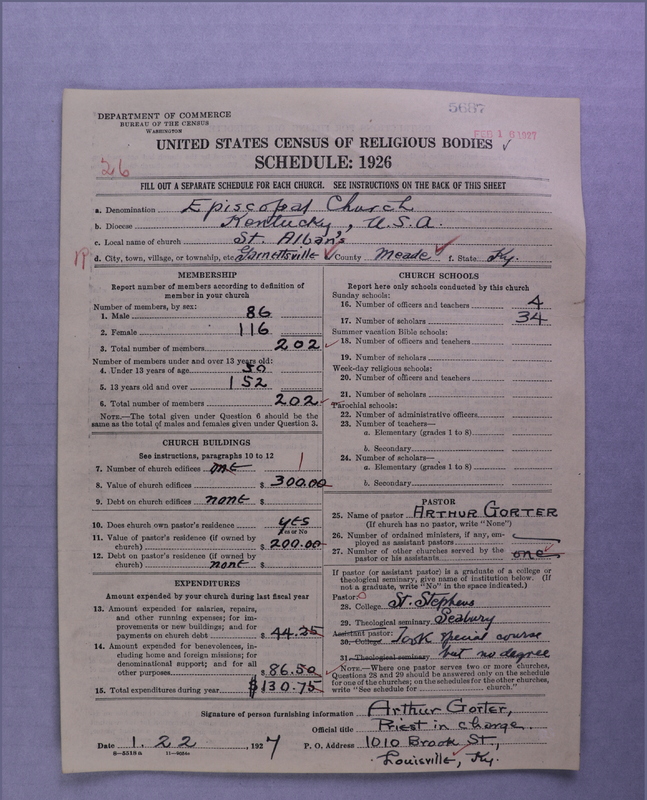 5687
DEPARTMENT OF COMMERCE
BUREAU OF THE CENSUS
WASHINGTON
FEB 16 1927
UNITED STATES CENSUS OF RELIGIOUS BODIES ✓
SCHEDULE: 1926
26
FILL OUT A SEPARATE SCHEDULE FOR EACH CHURCH. SEE INSTRUCTIONS ON THE BACK OF THIS SHEET
a. Denomination Episcopal Church
b. Diocese Kentucky, U.S.A.
c. Local name of church St. Alban's
d. City, town, village, or township, etc. Garnettsville County Meade f. State Ky.
MEMBERSHIP
Report number of members according to definition of
member in your church
Number of members, by sex:
1. Male 86
2. Female 116
3. Total number of members 202
Number of members under and over 13 years old:
4. Under 13 years of age 50
5. 13 years old and over 152
6. Total number of members 202
NOTE.—The total given under Question 6 should be the
same as the total of males and females given under Question 3.
CHURCH BUILDINGS
See instructions, paragraphs 10 to 12
7. Number of church edifices one 1
8. Value of church edifices $ 300.00
9. Debt on church edifices none $
10. Does church own pastor's residence yes
Yes or No
11. Value of pastor's residence (if owned by
church) $ 200.00
12. Debt on pastor's residence (if owned by
church) none $
EXPENDITURES
Amount expended by church during last fiscal year
13. Amount expended for salaries, repairs,
and other running expenses; for im-
provements or new buildings; and for
payments on church debt $ 44.25
14. Amount expended for benevolences, in-
cluding home and foreign missions; for
denominational support; and for all
other purposes $ 86.50
15. Total expenditures during year $ 130.75
CHURCH SCHOOLS
Report here only schools conducted by this church
Sunday schools:
16. Number of officers and teachers 4
17. Number of scholars 34
Summer vacation Bible schools:
18. Number of officers and teachers
19. Number of scholars
Week-day religious schools:
20. Number of officers and teachers
21. Number of scholars
Parochial schools:
22. Number of administrative officers
23. Number of teachers—
a. Elementary (grades 1 to 8)
b. Secondary
24. Number of scholars—
a. Elementary (grades 1 to 8)
b. Secondary
PASTOR
25. Name of pastor ARTHUR GORTER
(If church has no pastor, write "None")
26. Number of ordained ministers, if any, em-
ployed as assistant pastors
27. Number of other churches served by the
pastor or his assistants one
If pastor (or assistant pastor) is a graduate of a college or
theological seminary, give name of institution below. (If
not a graduate, write "No" in the space indicated.)
Pastor:
28. College St. Stephens
29. Theological seminary Seabury
Assistant pastor:
30. College Took special course
31. Theological seminary but no degree
NOTE.—Where one pastor serves two or more churches,
Questions 28 and 29 should be answered only on the schedule
for one of the churches; on the schedules for the other churches,
write "See schedule for church."
Signature of person furnishing information Arthur Gorter,
Official title Priest in charge.
Date 1. 22, 1927 P. O. Address 1010 Brook St.,
Louisville, Ky.
8—5518a